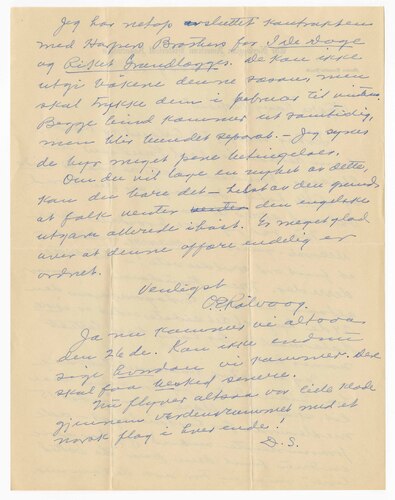 Jeg har netop avsluttet kontrakten
med Harpers Brothers for I de Dage
og Riket Grundlægges. De kan ikke
utgi bøkene denne sæson, men
skal trykke dem i februar til
Begge bind kommer ut samtidig,
men blir bundet separat. – Jeg synes
de byr meget pene betingelser.
Om du vil lage en nyhet av dette,
kan du bare det – helst av den grund
at folk venter venter den engelske
utgave allerede i høst. Er meget glad
over at denne affære endelig er
ordnet.
Venligst
O.E. Rölvaag.
Ja nu kommer vi altsaa
den 26de. Kan ikke endnu
sige hvordan vi kommer. Dere
skal faa besked senere.
Nu flyver altsaa vor lide klode
gjennem verdensrummet med et
norsk flag i hver ende!
D. S.